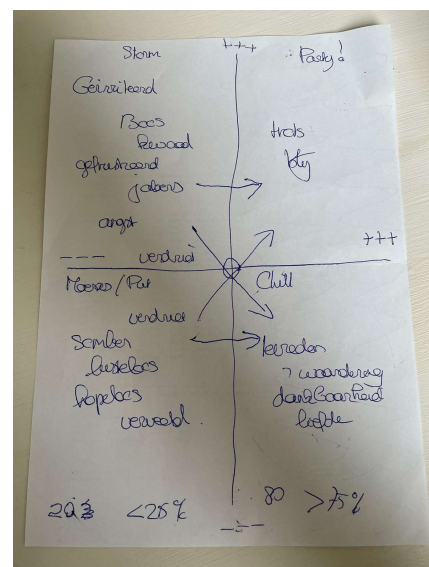 Storm
+++
Party!
Geirriteerd
Boos
kwaad
gefrustreerd
jaloers
angst
verdriet
trots
blij
+++
---
Moeras / Put
Chill
verdriet
Somber
lusteloos
hopeloos
verveeld.
tevreden
waardering
dankbaarheid
liefde
<25%
80 >75%
---